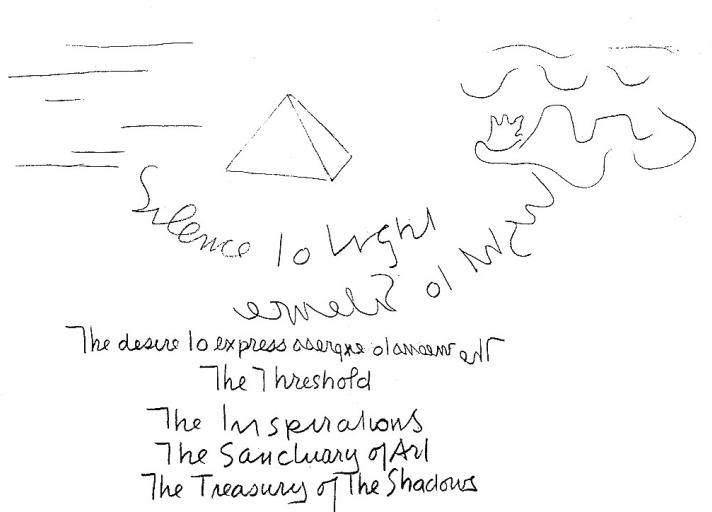 Silence to Light
to Silence
The desire to express
The Threshold
The Inspirations
The Sanctuary of Art
The Treasury of The Shadows